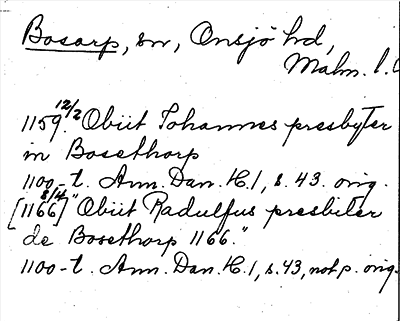 Bosarp, sn, Onsjö hd,
Malm. l.
12/2
1159. "Obiit Johannes presbyter
in Bosethorp
1100-t. Ann. Dan. H. 1, s. 43. orig.
8/4
[1166] "Obiit Radulfus presbiter
de Bosethorp 1166."
1100-t. Ann. Dan. H. 1, s. 43, not p. orig.